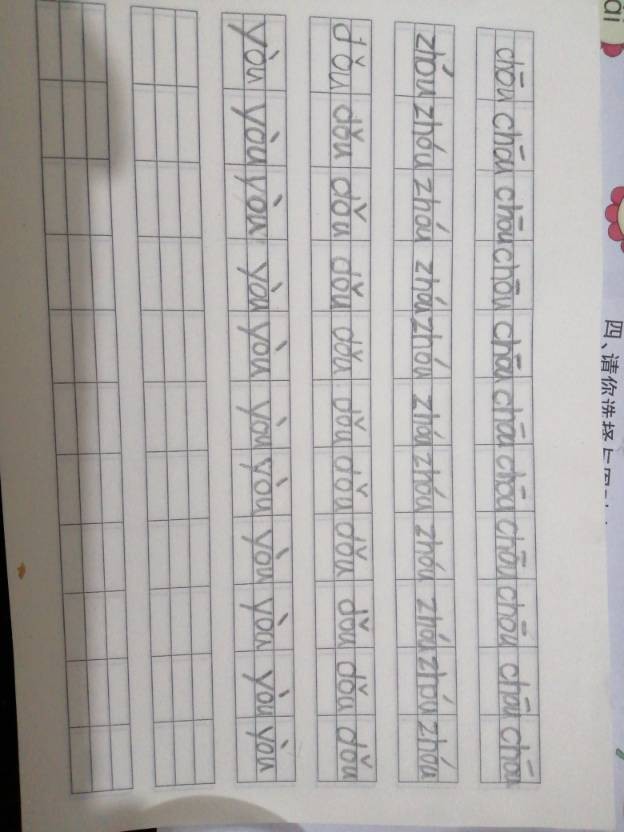 chōu chōu chōu chōu chōu chōu chōu chōu chōu chōu chōu
zhóu zhóu zhóu zhóu zhóu zhóu zhóu zhóu zhóu zhóu zhóu
dǒu dǒu dǒu dǒu dǒu dǒu dǒu dǒu dǒu dǒu dǒu
yòu yòu yòu yòu yòu yòu yòu yòu yòu yòu yòu
四、请你选择